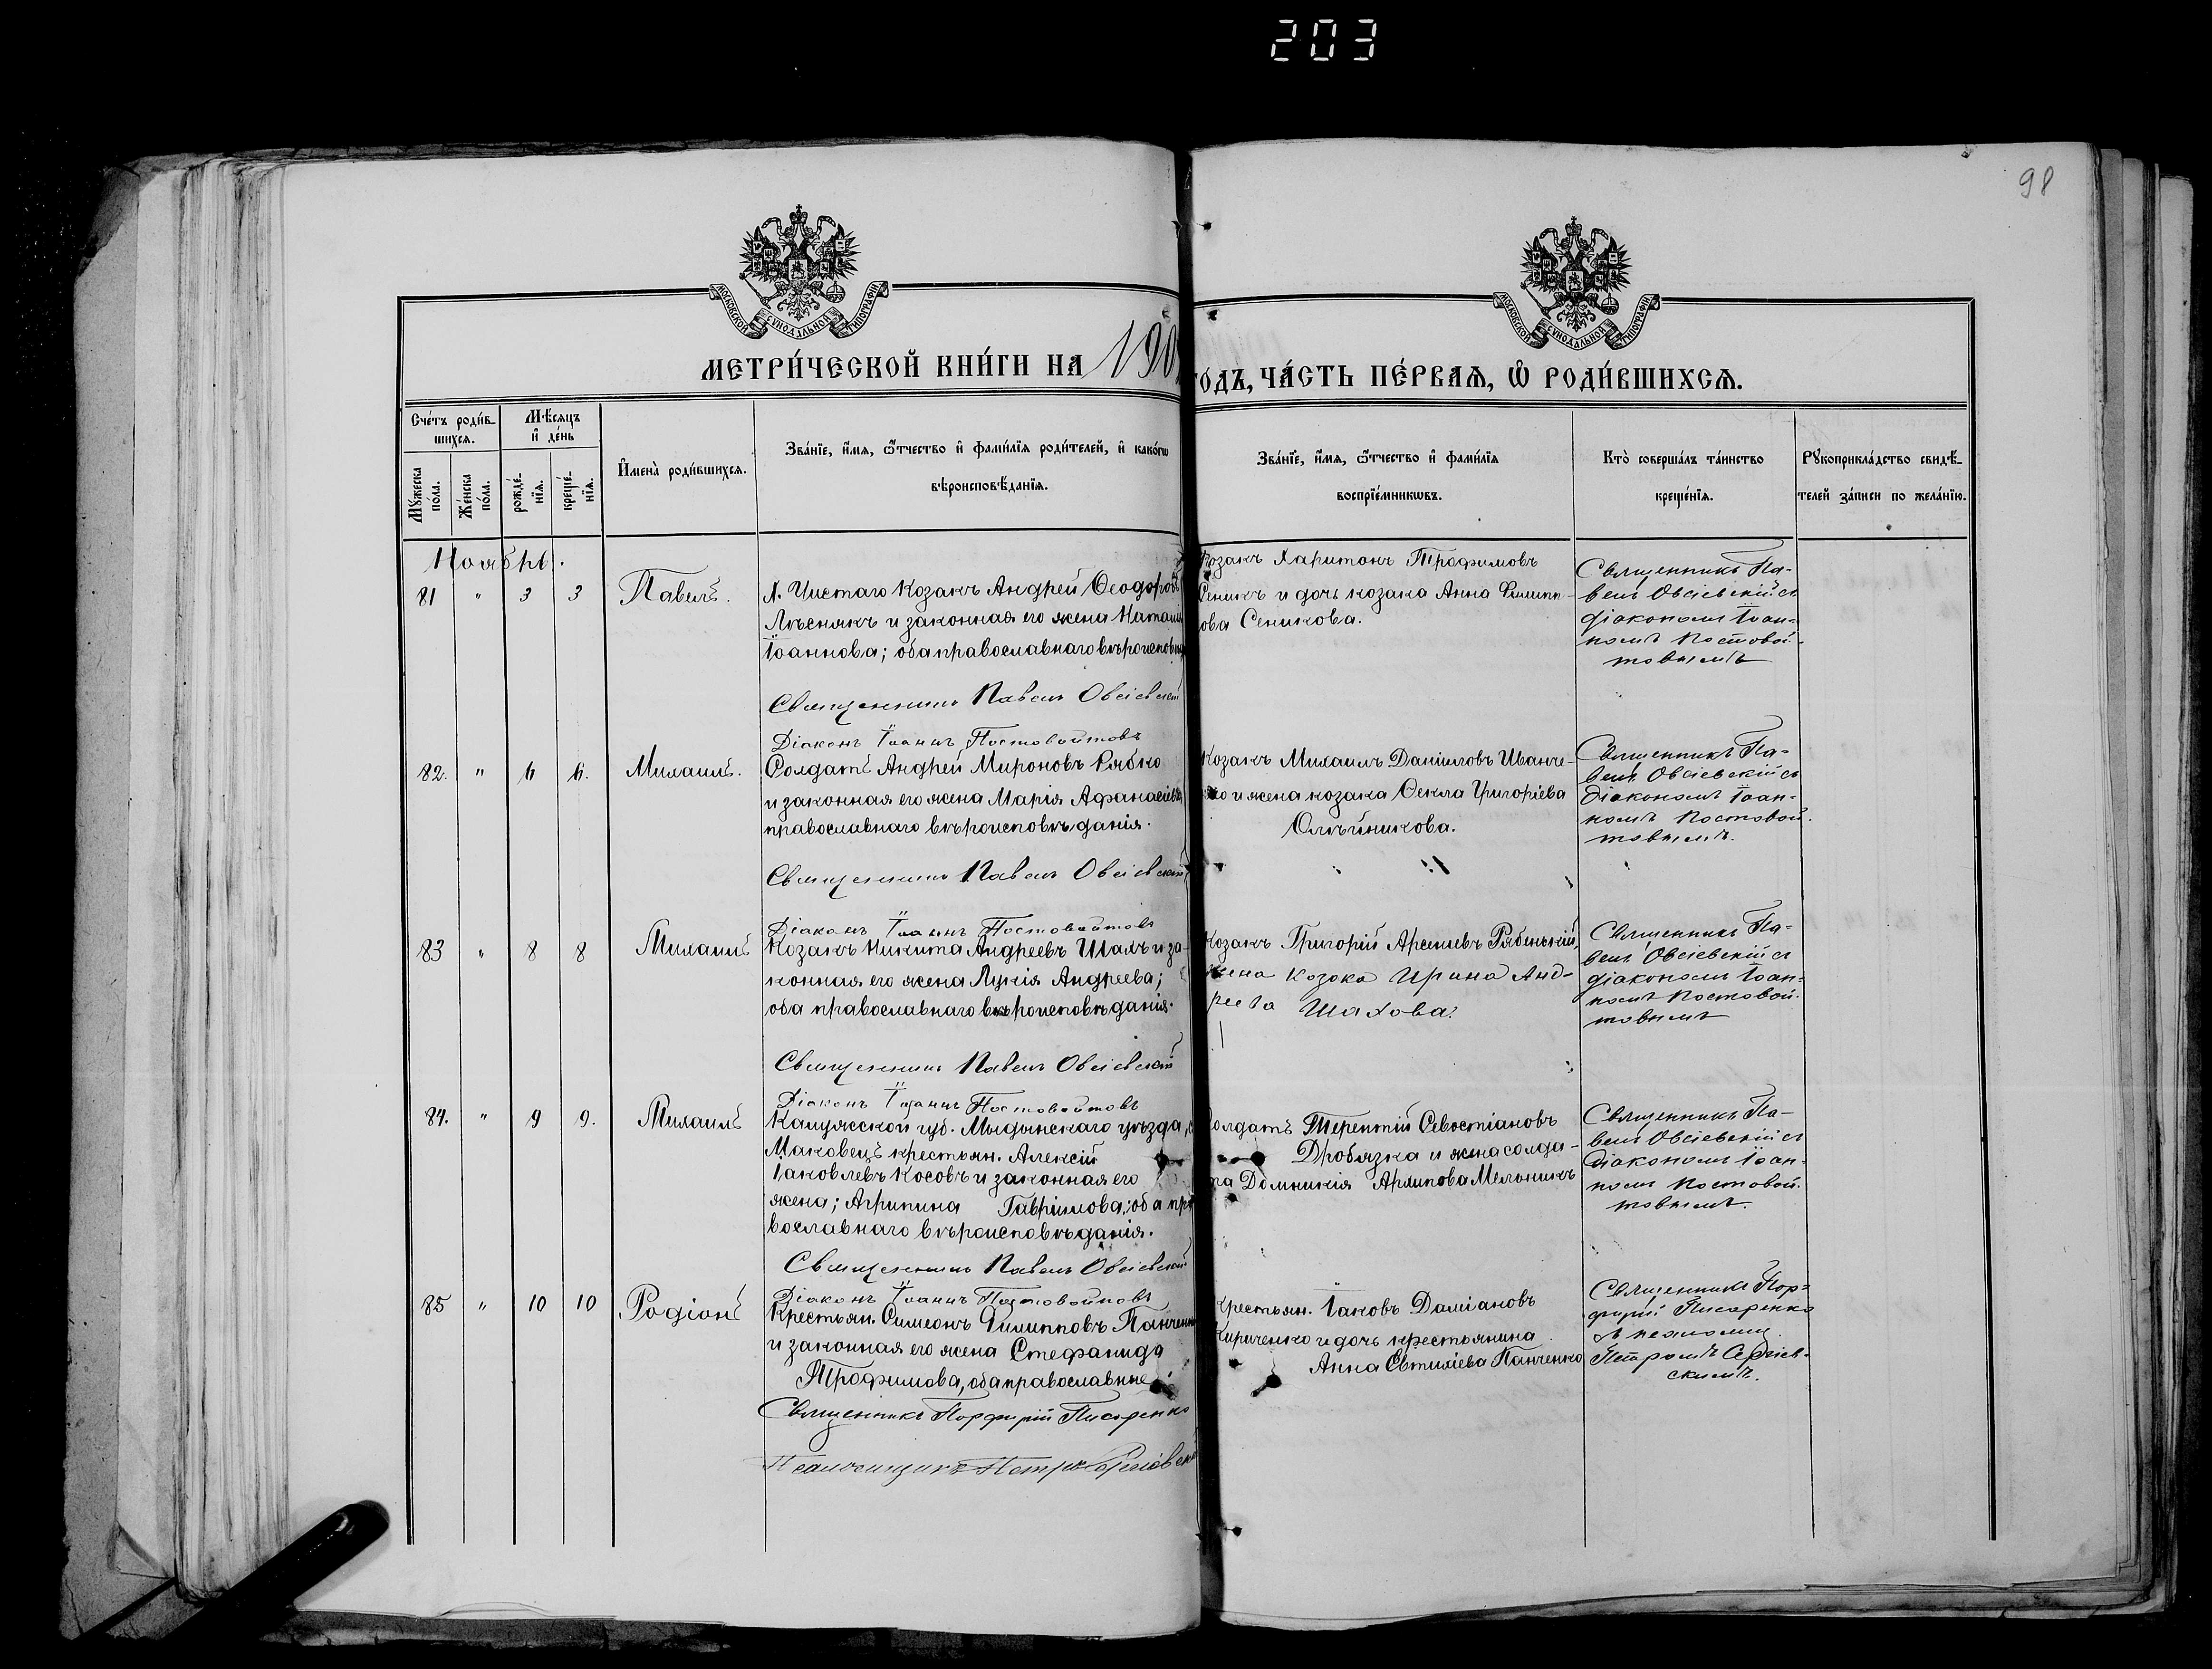 203
98
МОСКОВСКОЙ СѴНОДАЛЬНОЙ ТИПОГРАФІИ
МОСКОВСКОЙ СѴНОДАЛЬНОЙ ТИПОГРАФІИ
МЕТРИ́ЧЕСКОЙ КНИ́ГИ НА 190
ГОДЪ, ЧА́СТЬ ПЕ́РВАѦ, Ѽ РОДИ́ВШИХСѦ.
Сче́тъ роди́в-
шихсѧ.
Мѣ́сѧцъ
и҆ де́нь
Мꙋ́жеска
по́ла.
Же́нска
по́ла.
рожде́-
нїѧ.
креще́-
нїѧ.
И҆мена̀ роди́вшихсѧ.
Зва́нїе, и҆́мѧ, ѻ҆́тчество и҆ фами́лїѧ роди́телей, и҆ како́гѡ
вѣроисповѣ́данїѧ.
Зва́нїе, и҆́мѧ, ѻ҆́тчество и҆ фами́лїѧ
воспрїе́мникѡвъ.
Кто̀ соверша́лъ та́инство
креще́нїѧ.
Рꙋкоприкла́дство свидѣ́-
телей за́писи по жела́нїю.
Ноябрь.
81 " 3 3 Павелъ.
Х. Чистаго Козакъ Андрей Ѳеодоровъ
Лѣснякъ и законная его жена Наталія
Іоаннова; оба православнаго вѣроисповѣд
Священникъ Павелъ Овсіевскій
Діаконъ Іоаннъ Постовойтовъ
Козакъ Харитонъ Трофимовъ
Сеникъ и дочь козака Анна Филипп-
ова Сеникова.
Священникъ Па-
велъ Овсіевскій съ
діакономъ Іоан-
номъ Постовой-
товымъ
82. " 6 6. Михаилъ.
Солдатъ Андрей Мироновъ Рябко
и законная его жена Марія Афанасіева
православнаго вѣроисповѣданія.
Священникъ Павелъ Овсіевскій
Діаконъ Іоаннъ Постовойтовъ
Козакъ Михаилъ Даніиловъ Иванче-
нко и жена козака Ѳекла Григоріева
Олѣйникова.
Священникъ Па-
велъ Овсіевскій съ
діакономъ Іоан-
номъ Постовой-
товымъ.
83 " 8 8 Михаилъ
Козакъ Никита Андреевъ Шахъ и за-
конная его жена Лукія Андреева;
оба православнаго вѣроисповѣданія.
Священникъ Павелъ Овсіевскій
Діаконъ Іоаннъ Постовойтовъ
Козакъ Григорій Арсеніевъ Рябенькій,
жена козака Ирина Анд-
реева Шахова.
Священникъ Па-
велъ Овсіевскій съ
діакономъ Іоан-
номъ Постовой-
товымъ
84. " 9 9. Михаилъ
Калужской губ. Мыдынскаго уѣзда, с
Маковецъ крестьян. Алексій
Іаковлевъ Косовъ и законная его
жена; Агрипина Гавріилова; оба пра
вославнаго вѣроисповѣданія.
Священникъ Павелъ Овсіевскій
Діаконъ Іоаннъ Постовойтовъ
Солдатъ Терентій Севостіановъ
Дробязка и жена солда-
та Домникія Архипова Мельникъ
Священникъ Па-
велъ Овсіевскій съ
діакономъ Іоан-
номъ Постовой-
товымъ.
85 " 10 10 Родіонъ
Крестьян. Симеонъ Филипповъ Панченко
и законная его жена Стефанида
Трофимова, оба православные.
Священникъ Порфирій Писаренко
Псаломщикъ Петръ Сергіевскій
Крестьян. Іаковъ Даміановъ
Кириченко и дочь крестьянина
Анна Евтихіева Панченко
Священникъ Пор-
фирій Писаренко
съ псаломщ.
Петромъ Сергіев-
скимъ.